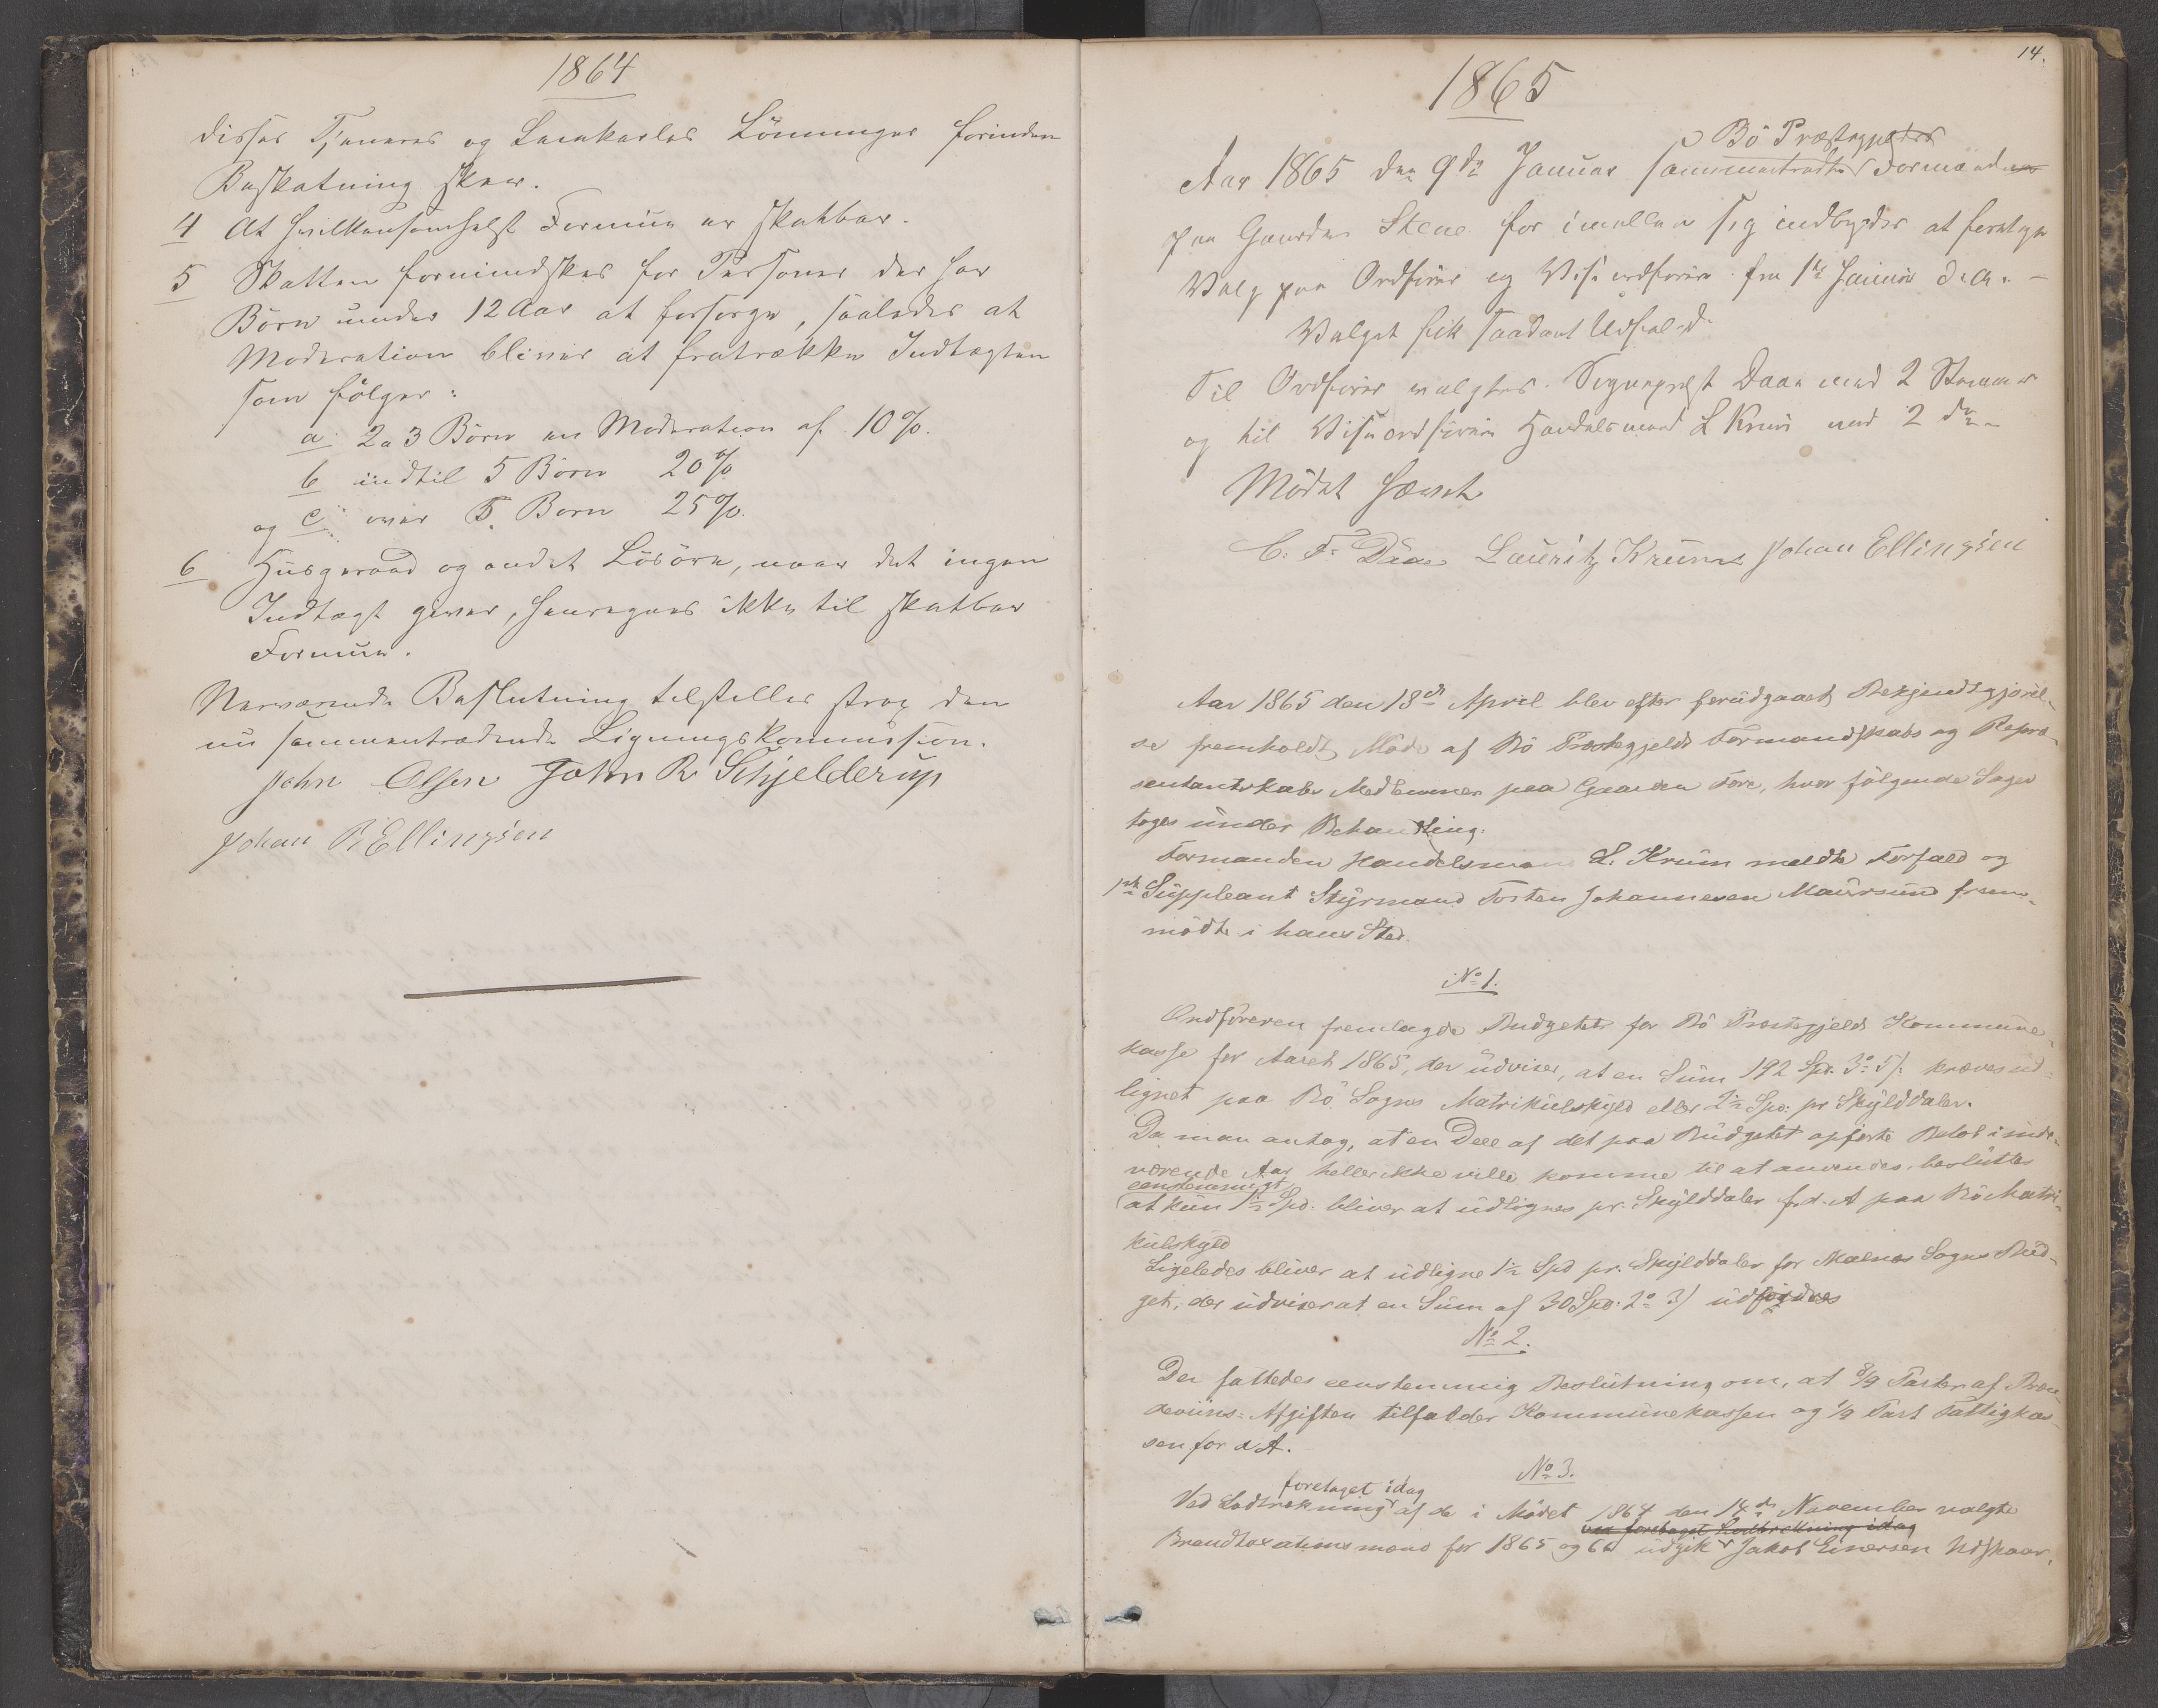 1864
disses Tjeneres og Leiekarles Lönninger forinden
Beskatning skeer.
4 At hvilkensomhelst Formue er skatbar.
5 Skatten formindskes for Personer der har
Börn under 12 Aar at forsörge, saaledes at
Moderation bliver at fratrække Indtægten
som fölger:
a 2 a 3 Börn en Moderation af 10%.
b indtil 5 Börn 20%
og c over 5 Börn 25%.
6 Husgeraad og andet Lösöre, naar det ingen
Indtægt giver, henregnes ikke til skatbar
Formue.
Nærværende Beslutning tilstilles strax den
nu sammentrædende Ligningskommission.
John Olsen John R Schjelderup
Johan P. Ellingsen
14.
1865
Bö Præstegjelds
Aar 1865 den 9de Januar sammentraadte Formænd
paa Gaarden Steene for imellem sig indbyrdes at foretage
Valg paa Ordförer og Viseordförer fra 1ste Januar d. A. –
Valget fik saadant Udfald
Til Ordförer valgtes Sognepræst Daae med 2 Stemmer
og til Viseordförer Handelsmand L Krum med 2 do
Mödet hævet
C. F. Daae Lauritz Krum Johan Ellingsen
Aar 1865 den 18de April blev efter forudgaaet Bekjendtgjörel-
se fremholdt Möde af Bö Præstegjelds Formandskabs og Repræ-
sentantskabs Medlemmer paa Gaarden Fore, hvor fölgende Sager
toges under Behandling.
Formanden Handelsmand L. Krum meldte Forfald og
1ste Suppleant Styrmand Torsten Johannesen Maursund frem-
mödte i hans Sted.
No 1.
Ordföreren fremlagde Budgettet for Bö Præstegjelds Kommune-
kasse for Aaret 1865, der udviser, at en Sum 192 Spd. 3 5 kræves ud-
lignet paa Bö Sogns Matrikulskyld eller 2½ Spd. pr Skylddaler.
Da man antog, at en Deel af det paa Budgetet opförte Belöb i inde-
værende Aar heller ikke ville komme til at anvendes, besluttes
eenstemmigt
at kun 1½ Spd. bliver at udlignes pr. Skylddaler for d. A paa Bö Matri-
kulskyld
Ligeledes bliver at udligne 1½ Spd pr. Skylddaler for Malnes Sogns Bud-
get, der udviser at en Sum af 30 Spd. 2 3 udfordres
No 2.
Der fattedes eenstemmig Beslutning om, at 8/9 Parter af Bræn-
deviins-Afgiften tilfalder Kommunekassen og 1/9 Part Fattigkas-
sen for d A.
No 3.
foretaget idag
Ved Lodtrækning af de i Mödet 1864 den 14de November valgte
var foretaget Lodtrækning idag
Brandtaxationsmænd for 1865 og 66 udgik Jakob Einersen Udskaar,